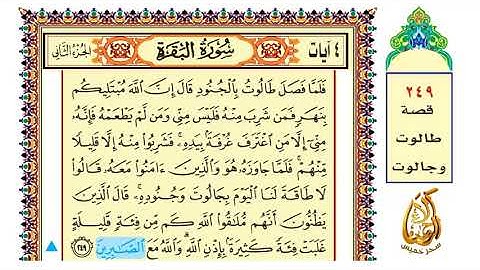 الجزء الثاني
سورة البقرة
٤ آيات
فَلَمَّا فَصَلَ طَالُوتُ بِالْجُنُودِ قَالَ إِنَّ اللَّهَ مُبْتَلِيكُم
بِنَهَرٍ فَمَن شَرِبَ مِنْهُ فَلَيْسَ مِنِّي وَمَن لَّمْ يَطْعَمْهُ فَإِنَّهُ
مِنِّي إِلَّا مَنِ اغْتَرَفَ غُرْفَةً بِيَدِهِ ۚ فَشَرِبُوا مِنْهُ إِلَّا قَلِيلًا
مِّنْهُمْ ۚ فَلَمَّا جَاوَزَهُ هُوَ وَالَّذِينَ ءَامَنُوا مَعَهُ قَالُوا
لَا طَاقَةَ لَنَا الْيَوْمَ بِجَالُوتَ وَجُنُودِهِ ۚ قَالَ الَّذِينَ
يَظُنُّونَ أَنَّهُم مُّلَاقُوا اللَّهِ كَم مِّن فِئَةٍ قَلِيلَةٍ
غَلَبَتْ فِئَةً كَثِيرَةً بِإِذْنِ اللَّهِ ۗ وَاللَّهُ مَعَ الصَّابِرِينَ ٢٤٩
٢٤٩
قصة
طالوت
وجالوت
سحر خميس